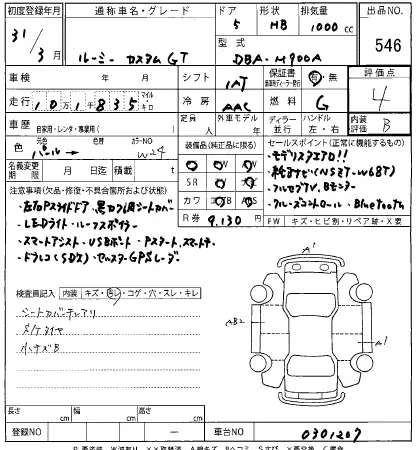 初度登録年月 通称車名・グレード ドア 形状 排気量 出品NO.
31/3月 ルーミー カスタム GT 5 HB 1000cc 546
型式 DBA-M900A
車検 年 月 シフト IAT 保証書 有・無 評価点
走行 10万1千835 マイル キロ 冷房 AAC 燃料 G 4
車歴 自家用・レンタ・事業用( ) 定員 人 外車モデル 年 ディーラー 並行 ハンドル 左・右 内装評価 B
色 元色 パール→ カラーNO W24 装備品(純正品に限る) セールスポイント(正常に機能するもの)
名義変更期限 月 日迄 積載
SR
カワ AB
R券 9,130円
・モデリスタエアロ!!
・純正ナビ(NSZT-W68T)
・フルセグTV、Bモニター
・クルーズコントロール・Bluetooth
注意事項(欠品・修復・不具合箇所および状態)
・左右Pスライドドア・黒カブロンシートカバー
・LEDライト・ルーフスポイラー
・スマートアシスト・USBポート・Pスタート、スマートキー
・ドラレコ(SDX)・セルスターGPSレーダー
FW キズ・ヒビ割・リペア跡・X要
検査員記入 内装 キズ・ヨゴレ・コゲ・穴・スレ・キレ
シートカバー
タイヤ
小キズB
A1
AB2
A1
長さ cm 幅 cm 高さ cm
登録NO ー 車台NO 0301207